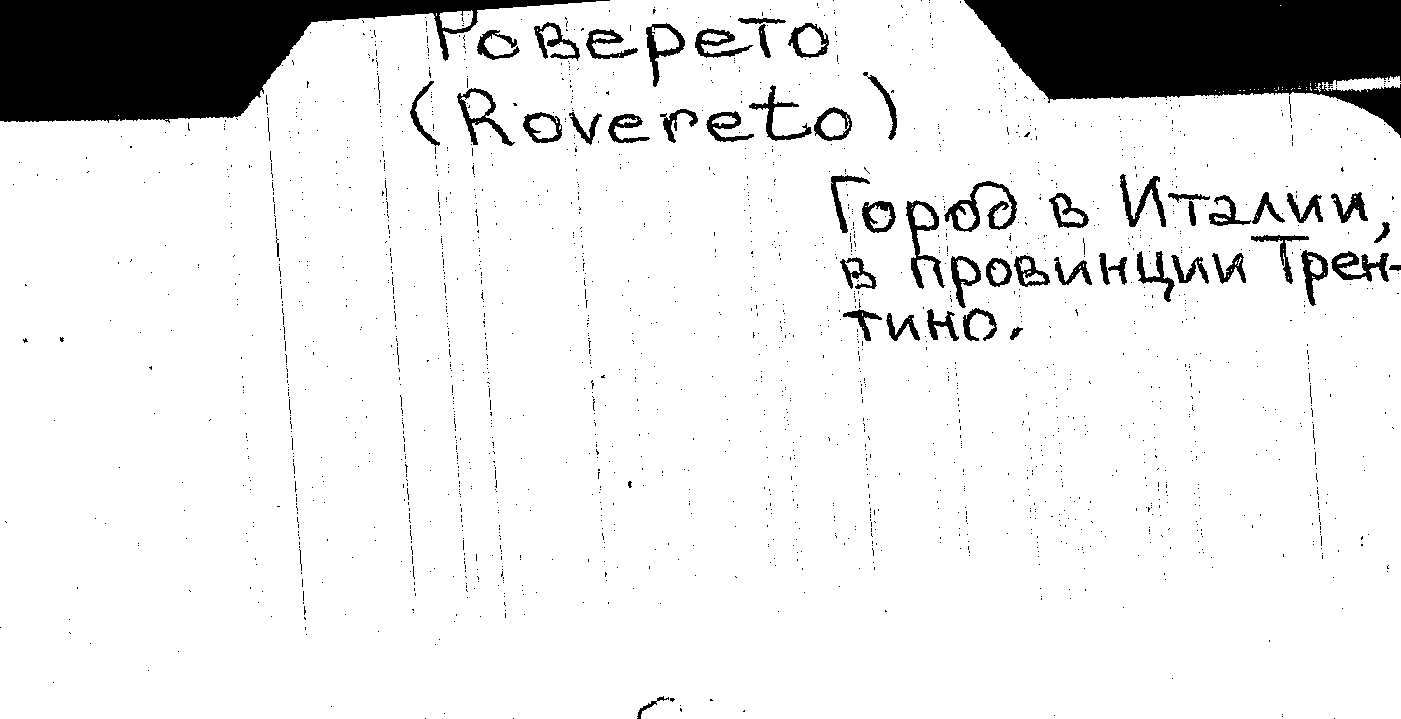 Роверето
(Rovereto)
Город в Италии,
в провинции Трен-
тино.